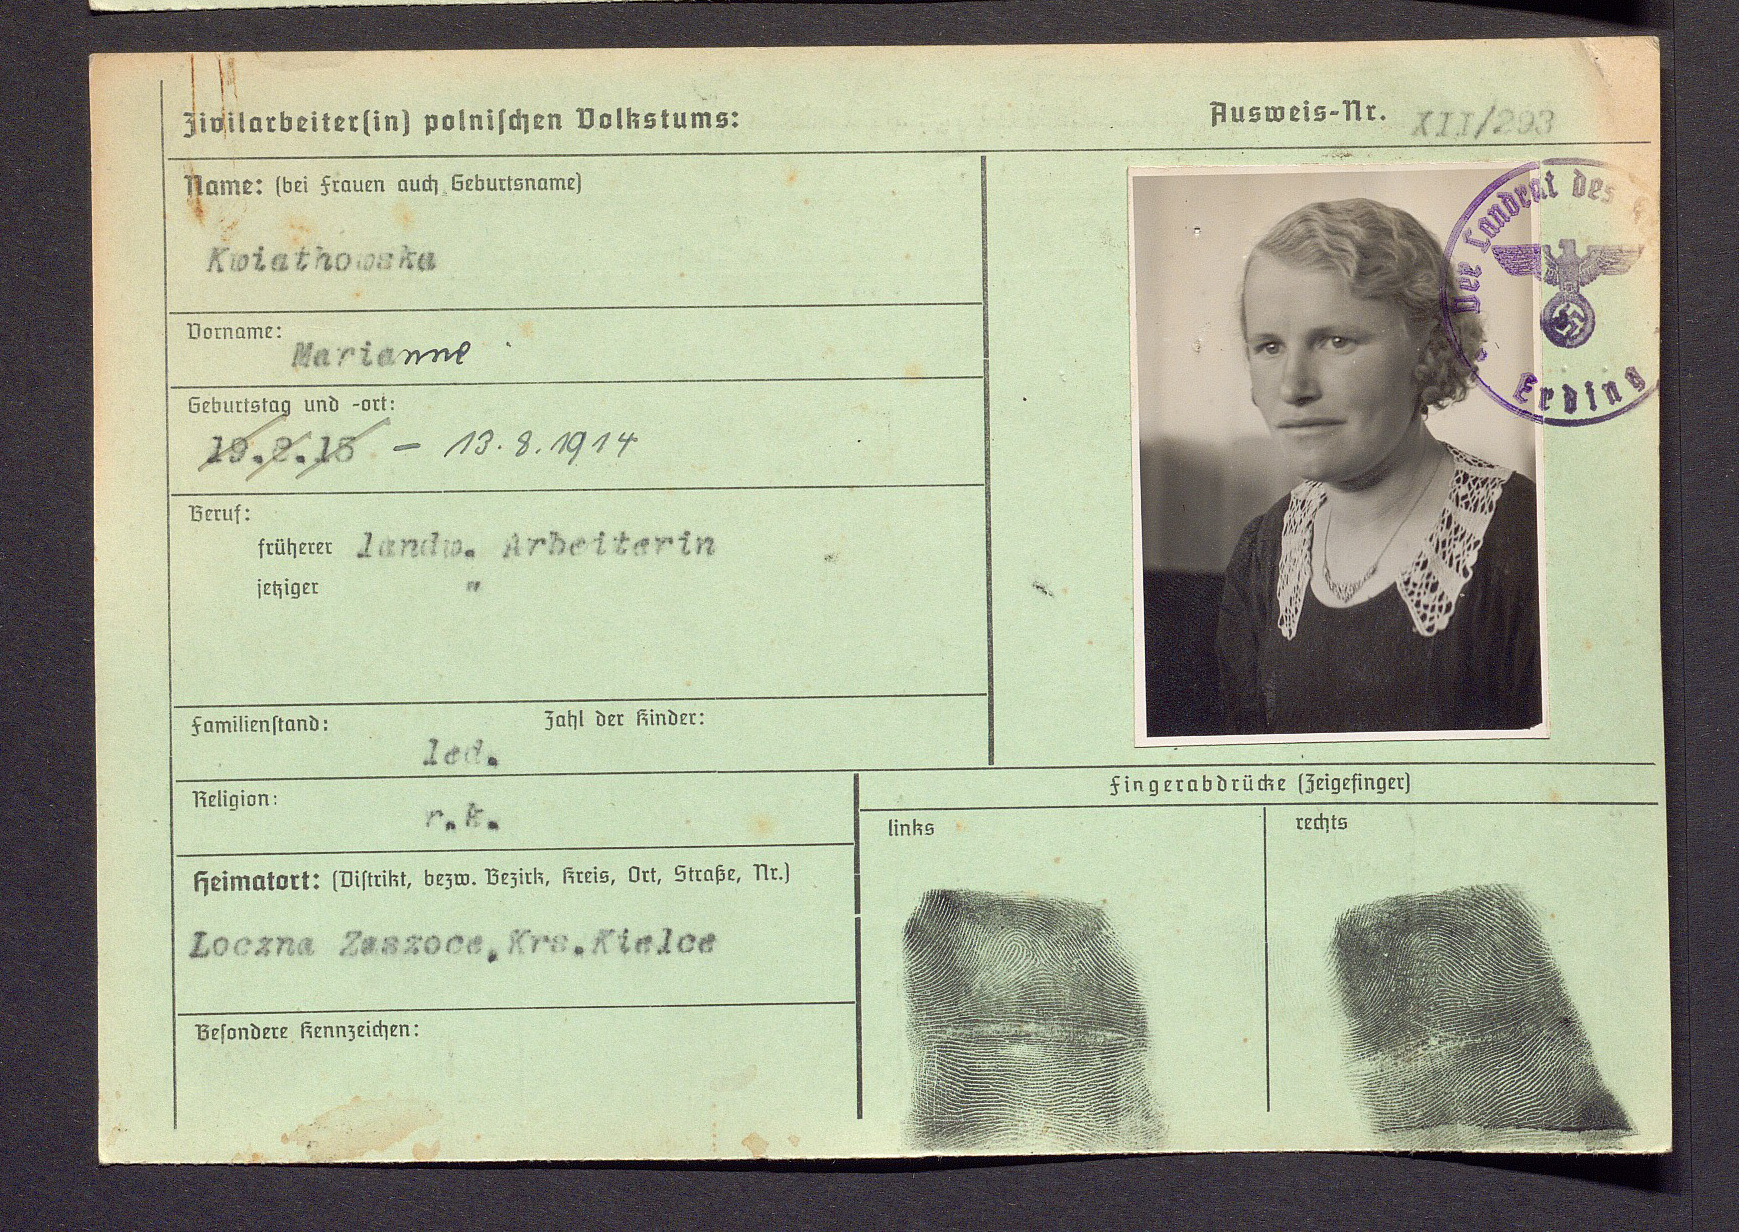 Zivilarbeiter(in) polnischen Volkstums:
Ausweis-Nr. XII/293
Name: (bei Frauen auch Geburtsname)
Kwiathowska
Vorname:
Marianne
Geburtstag und -ort:
19.2.15 – 13.8.1914
Beruf:
früherer landw. Arbeiterin
jetziger "
Familienstand: Zahl der Kinder:
led.
Religion:
r.k.
Heimatort: (Distrikt, bezw. Bezirk, Kreis, Ort, Straße, Nr.)
Loczna Zaszoce, Krs. Kielce
Besondere Kennzeichen:
Der Landrat des
Erding
Fingerabdrücke (Zeigefinger)
links
rechts